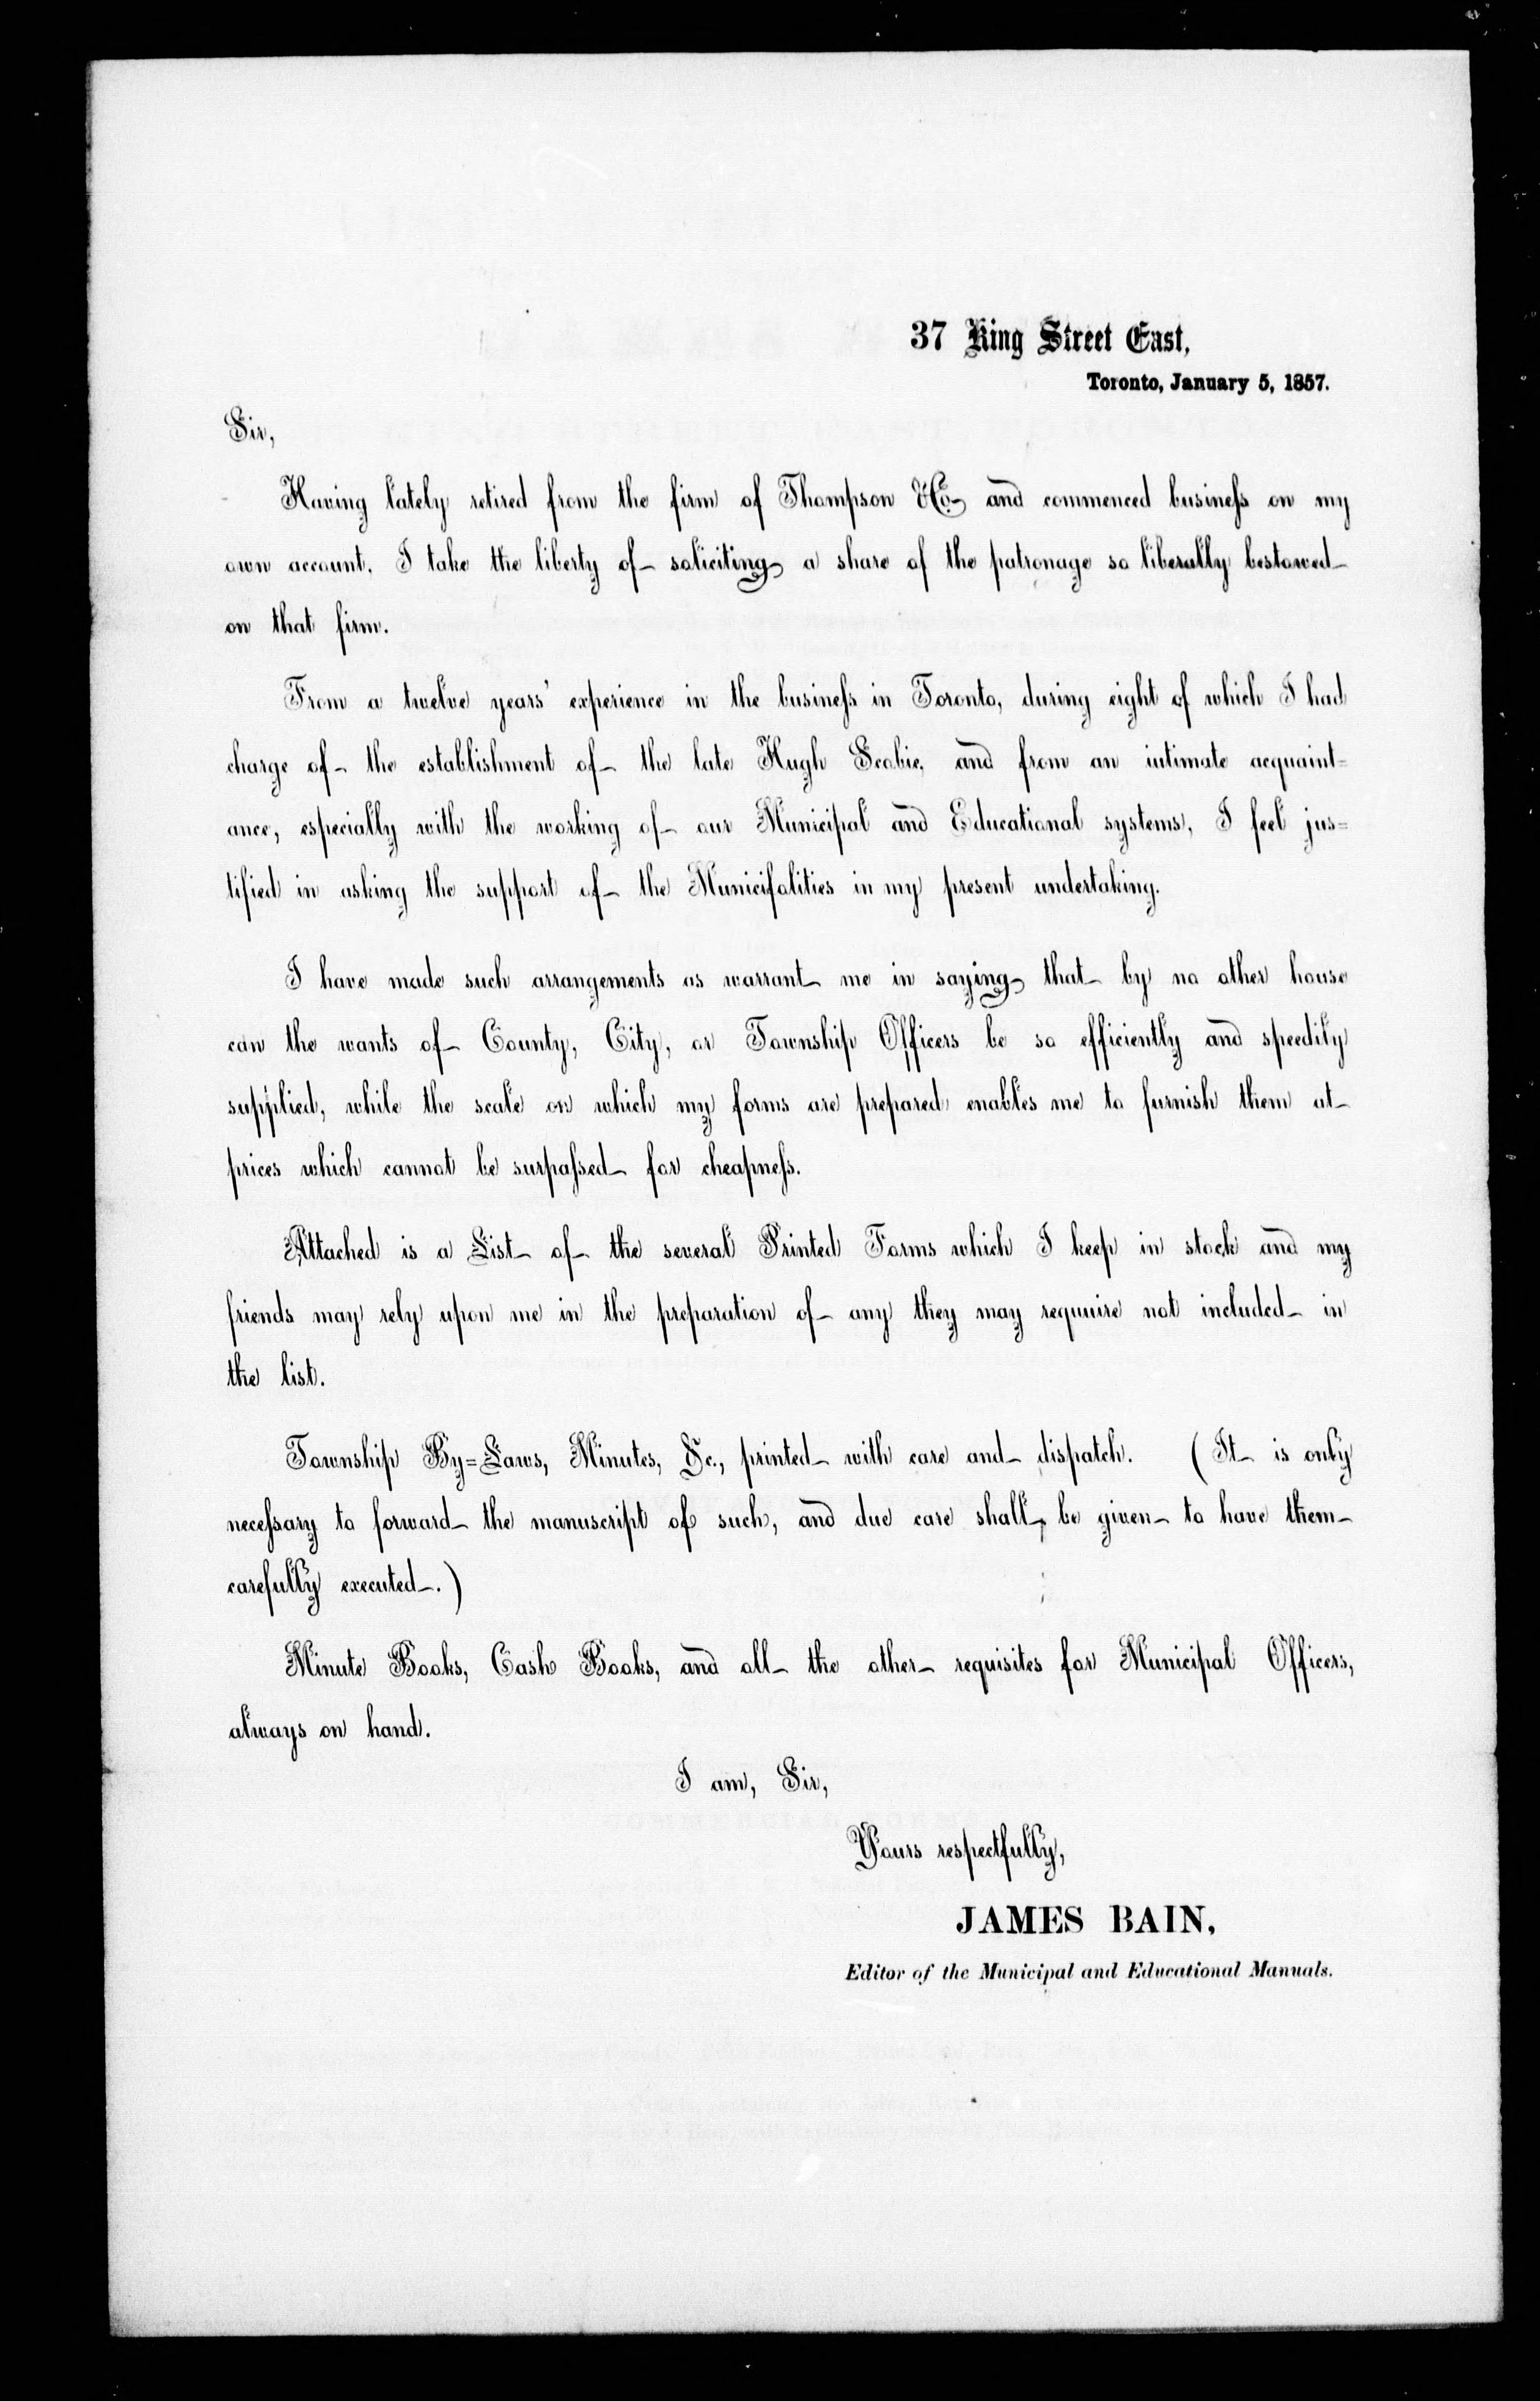 37 King Street East,
Toronto, January 5, 1857.
Sir,
Having lately retired from the firm of Thompson & Co. and commenced business on my
own account, I take the liberty of soliciting a share of the patronage so liberally bestowed
on that firm.
From a twelve years' experience in the business in Toronto, during eight of which I had
charge of the establishment of the late Hugh Scobie, and from an intimate acquaint=
ance, especially with the working of our Municipal and Educational systems, I feel jus=
tified in asking the support of the Municifalities in my present undertaking.
I have made such arrangements as warrant me in saying that by no other house
can the wants of County, City, or Township Officers be so efficiently and speedily
supplied, while the scale on which my forms are prepared enables me to furnish them at
prices which cannot be surpassed for cheapness.
Attached is a List of the several Printed Forms which I keep in stock and my
friends may rely upon me in the preparation of any they may requuire not included in
the list.
Township By=Laws, Minutes, &c., printed with care and dispatch. (It is only
necessary to forward the manuscript of such, and due care shall be given to have them
carefully executed.)
Minute Books, Cash Books, and all the other requisites for Municipal Officers,
always on hand.
I am, Sir,
Yours respectfully,
JAMES BAIN,
Editor of the Municipal and Educational Manuals.